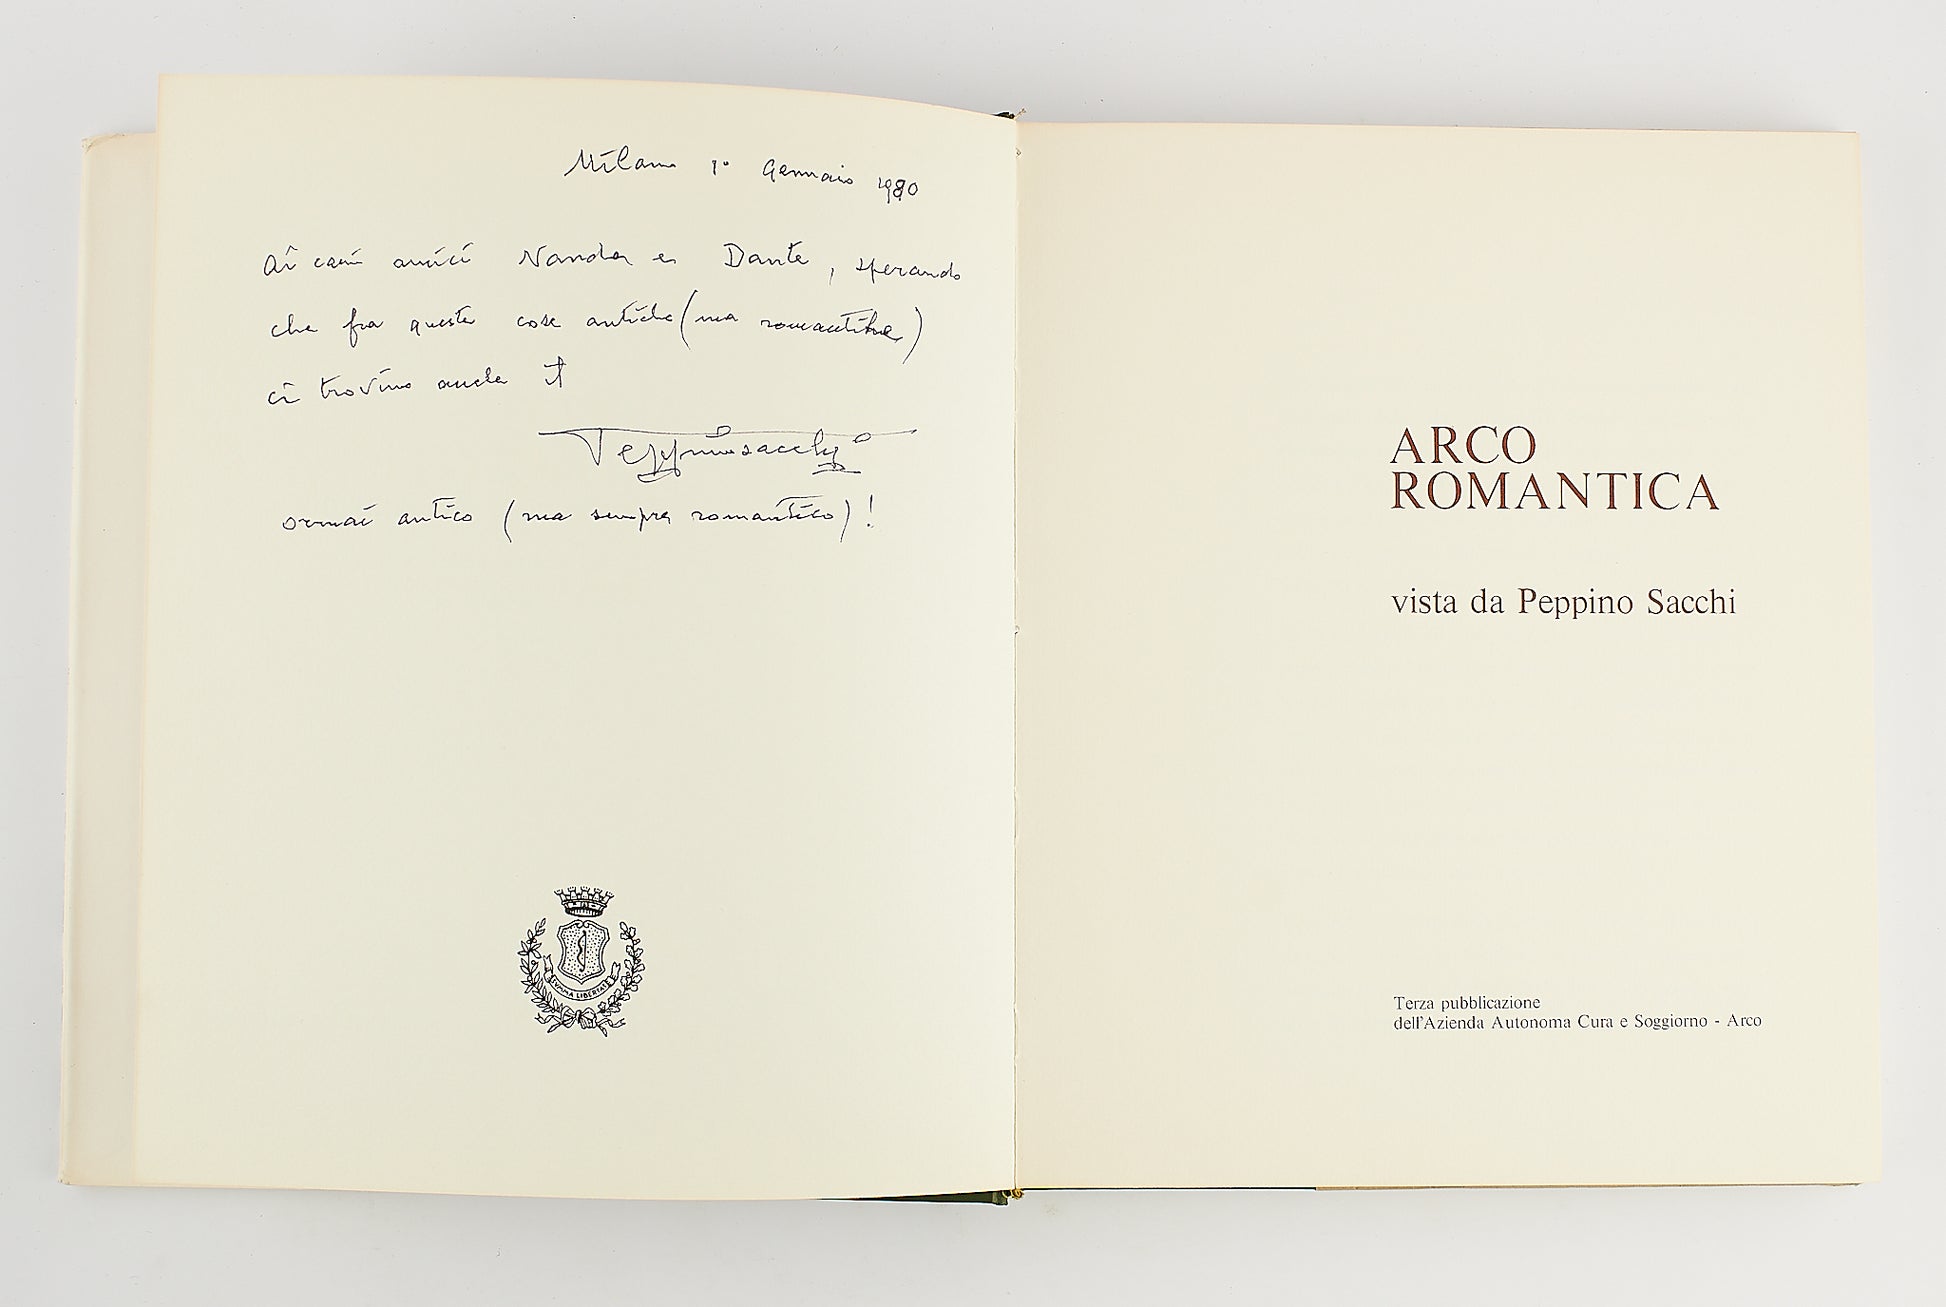 Milano 1° Gennaio 1980
Ai cari amici Nanda e Dante, sperando
che fra queste cose antiche (ma romantiche)
ci trovino anche il
Peppinosacchi
ormai antico (ma sempre romantico)!
SUMMA LIBERTAS
ARCO
ROMANTICA
vista da Peppino Sacchi
Terza pubblicazione
dell'Azienda Autonoma Cura e Soggiorno - Arco